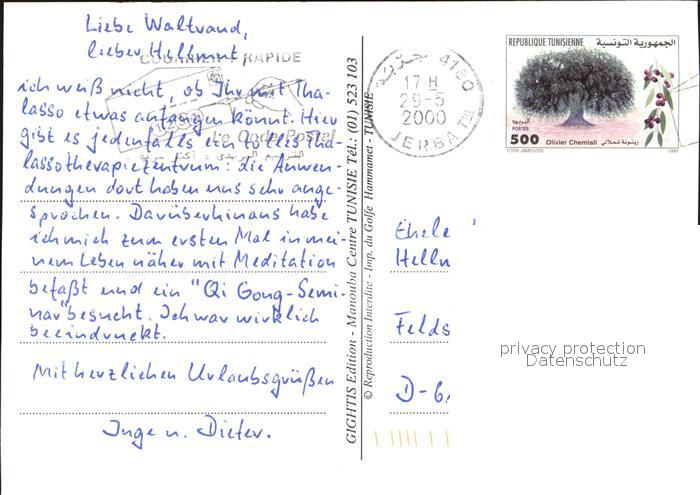 Liebe Waltraud,
lieber Hellmut,
RAPIDE
ich weiß nicht, ob Ihr mit Tha-
lasso etwas anfangen könnt. Hier
gibt es jedenfalls ein tolles Tha-
lassotherapiezentrum: die Anwen-
dungen dort haben uns sehr ange-
sprochen. Darüberhinaus habe
ich mich zum ersten Mal in mei-
nem Leben näher mit Meditation
befaßt und ein "Qi Gong-Semi-
nar" besucht. Ich war wirklich
beeindruckt.
Mit herzlichen Urlaubsgrüßen
Inge u. Dieter.
Le Code Postal
GIGHTIS Edition - Manouba Centre TUNISIE Tél.: (01) 523 103
© Reproduction Interdite - Imp. du Golfe Hammamet - TUNISIE
4180
17 H
29-5
2000
JERBA
REPUBLIQUE TUNISIENNE الجمهورية التونسية
البريد
POSTES
500
Olivier Chemlali زيتونة شملالي
YOSR JAMOUSSI
1999
Ehele
Hellm
Felds
D-6
privacy protection
Datenschutz